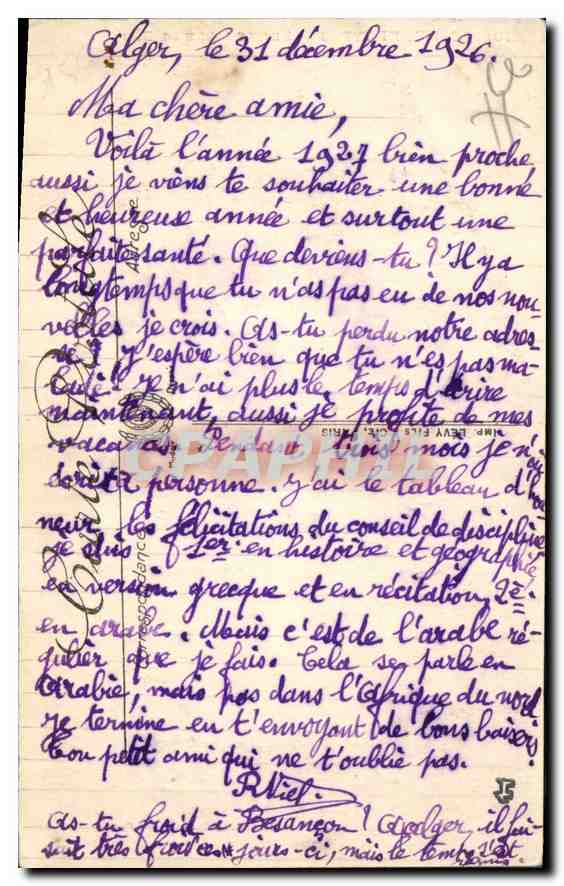 Alger, le 31 décembre 1926.
Ma chère amie,
Voilà l'année 1927 bien proche
aussi je viens te souhaiter une bonne
et heureuse année et surtout une
parfaite santé. Que deviens-tu ? Il y a
longtemps que tu n'as pas eu de nos nou-
velles je crois. As-tu perdu notre adres-
se ? J'espère bien que tu n'es pas ma-
lade. Je n'ai plus le temps d'écrire
maintenant, aussi je profite de mes
vacances. Pendant trois mois je n'ai
écrit à personne. J'ai le tableau d'hon-
neur, les félicitations du conseil de discipline
je suis 1er en histoire et géographie,
en version grecque et en récitation, 2è
en arabe. Mais c'est de l'arabe ré-
gulier que je fais. Cela se parle en
Arabie, mais pas dans l'Afrique du nord
Je termine en t'envoyant de bons baisers.
Ton petit ami qui ne t'oublie pas.
R Niel.
As-tu froid à Besançon ? A Alger, il fai-
sait très froid ces jours-ci, mais le temps s'est
remis.
Carte Postale
Correspondance
Adresse
Imp. LEVY FILS & CIE, PARIS
CPAPHIL